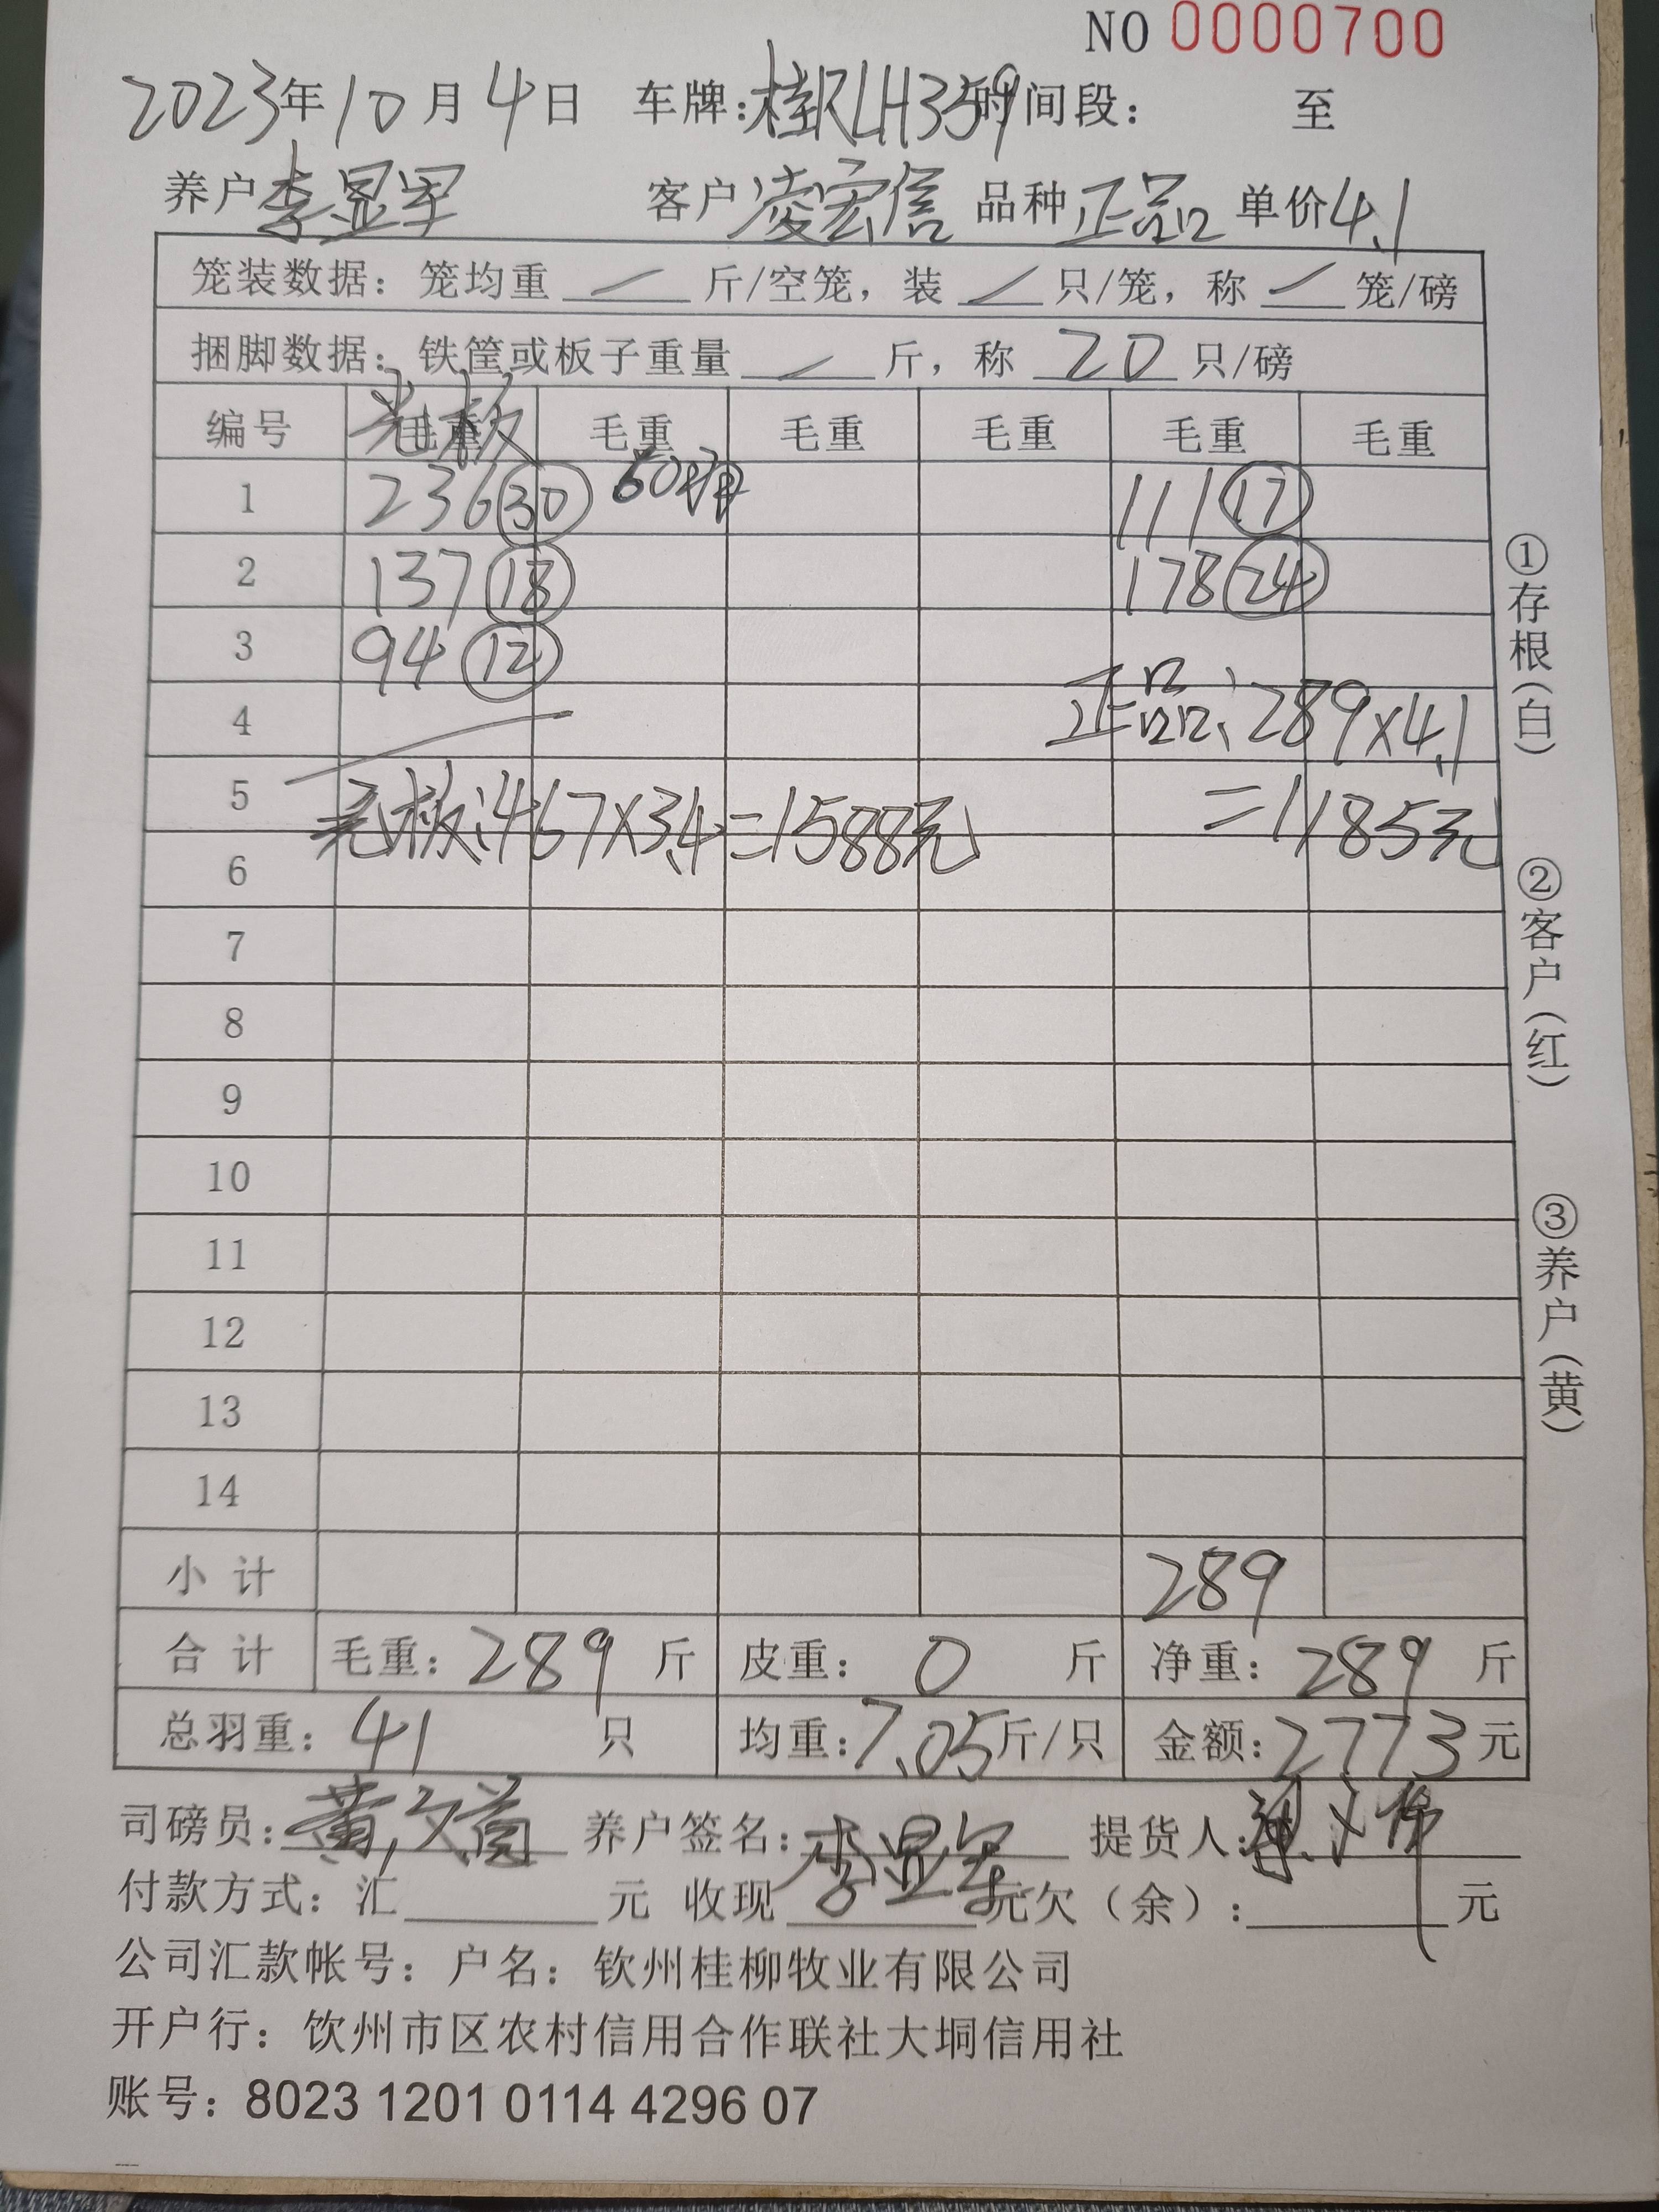 NO 0000700
2023年10月4日 车牌:桂RLH359时间段: 至
养户李显军 客户凌宏信 品种正品 单价4.1
笼装数据：笼均重 / 斤/空笼，装 / 只/笼，称 / 笼/磅
捆脚数据：铁筐或板子重量 / 斤，称 20 只/磅
编号 毛重 毛重 毛重 毛重 毛重 毛重
毛板
1 236 30 60 111 17
2 137 18 178 24
3 94 12
4 正品:289×4.1
5 毛板:467×3.4=1588元 =1185元
6
7
8
9
10
11
12
13
14
小计 289
合计 毛重：289 斤 皮重：0 斤 净重：289 斤
总羽重：41 只 均重:7.05斤/只 金额:2773元
司磅员: 养户签名:李显军 提货人:
付款方式：汇 元 收现 元欠（余）: 元
公司汇款帐号：户名：钦州桂柳牧业有限公司
开户行：饮州市区农村信用合作联社大垌信用社
账号：8023 1201 0114 4296 07
①存根(白)
②客户(红)
③养户(黄)